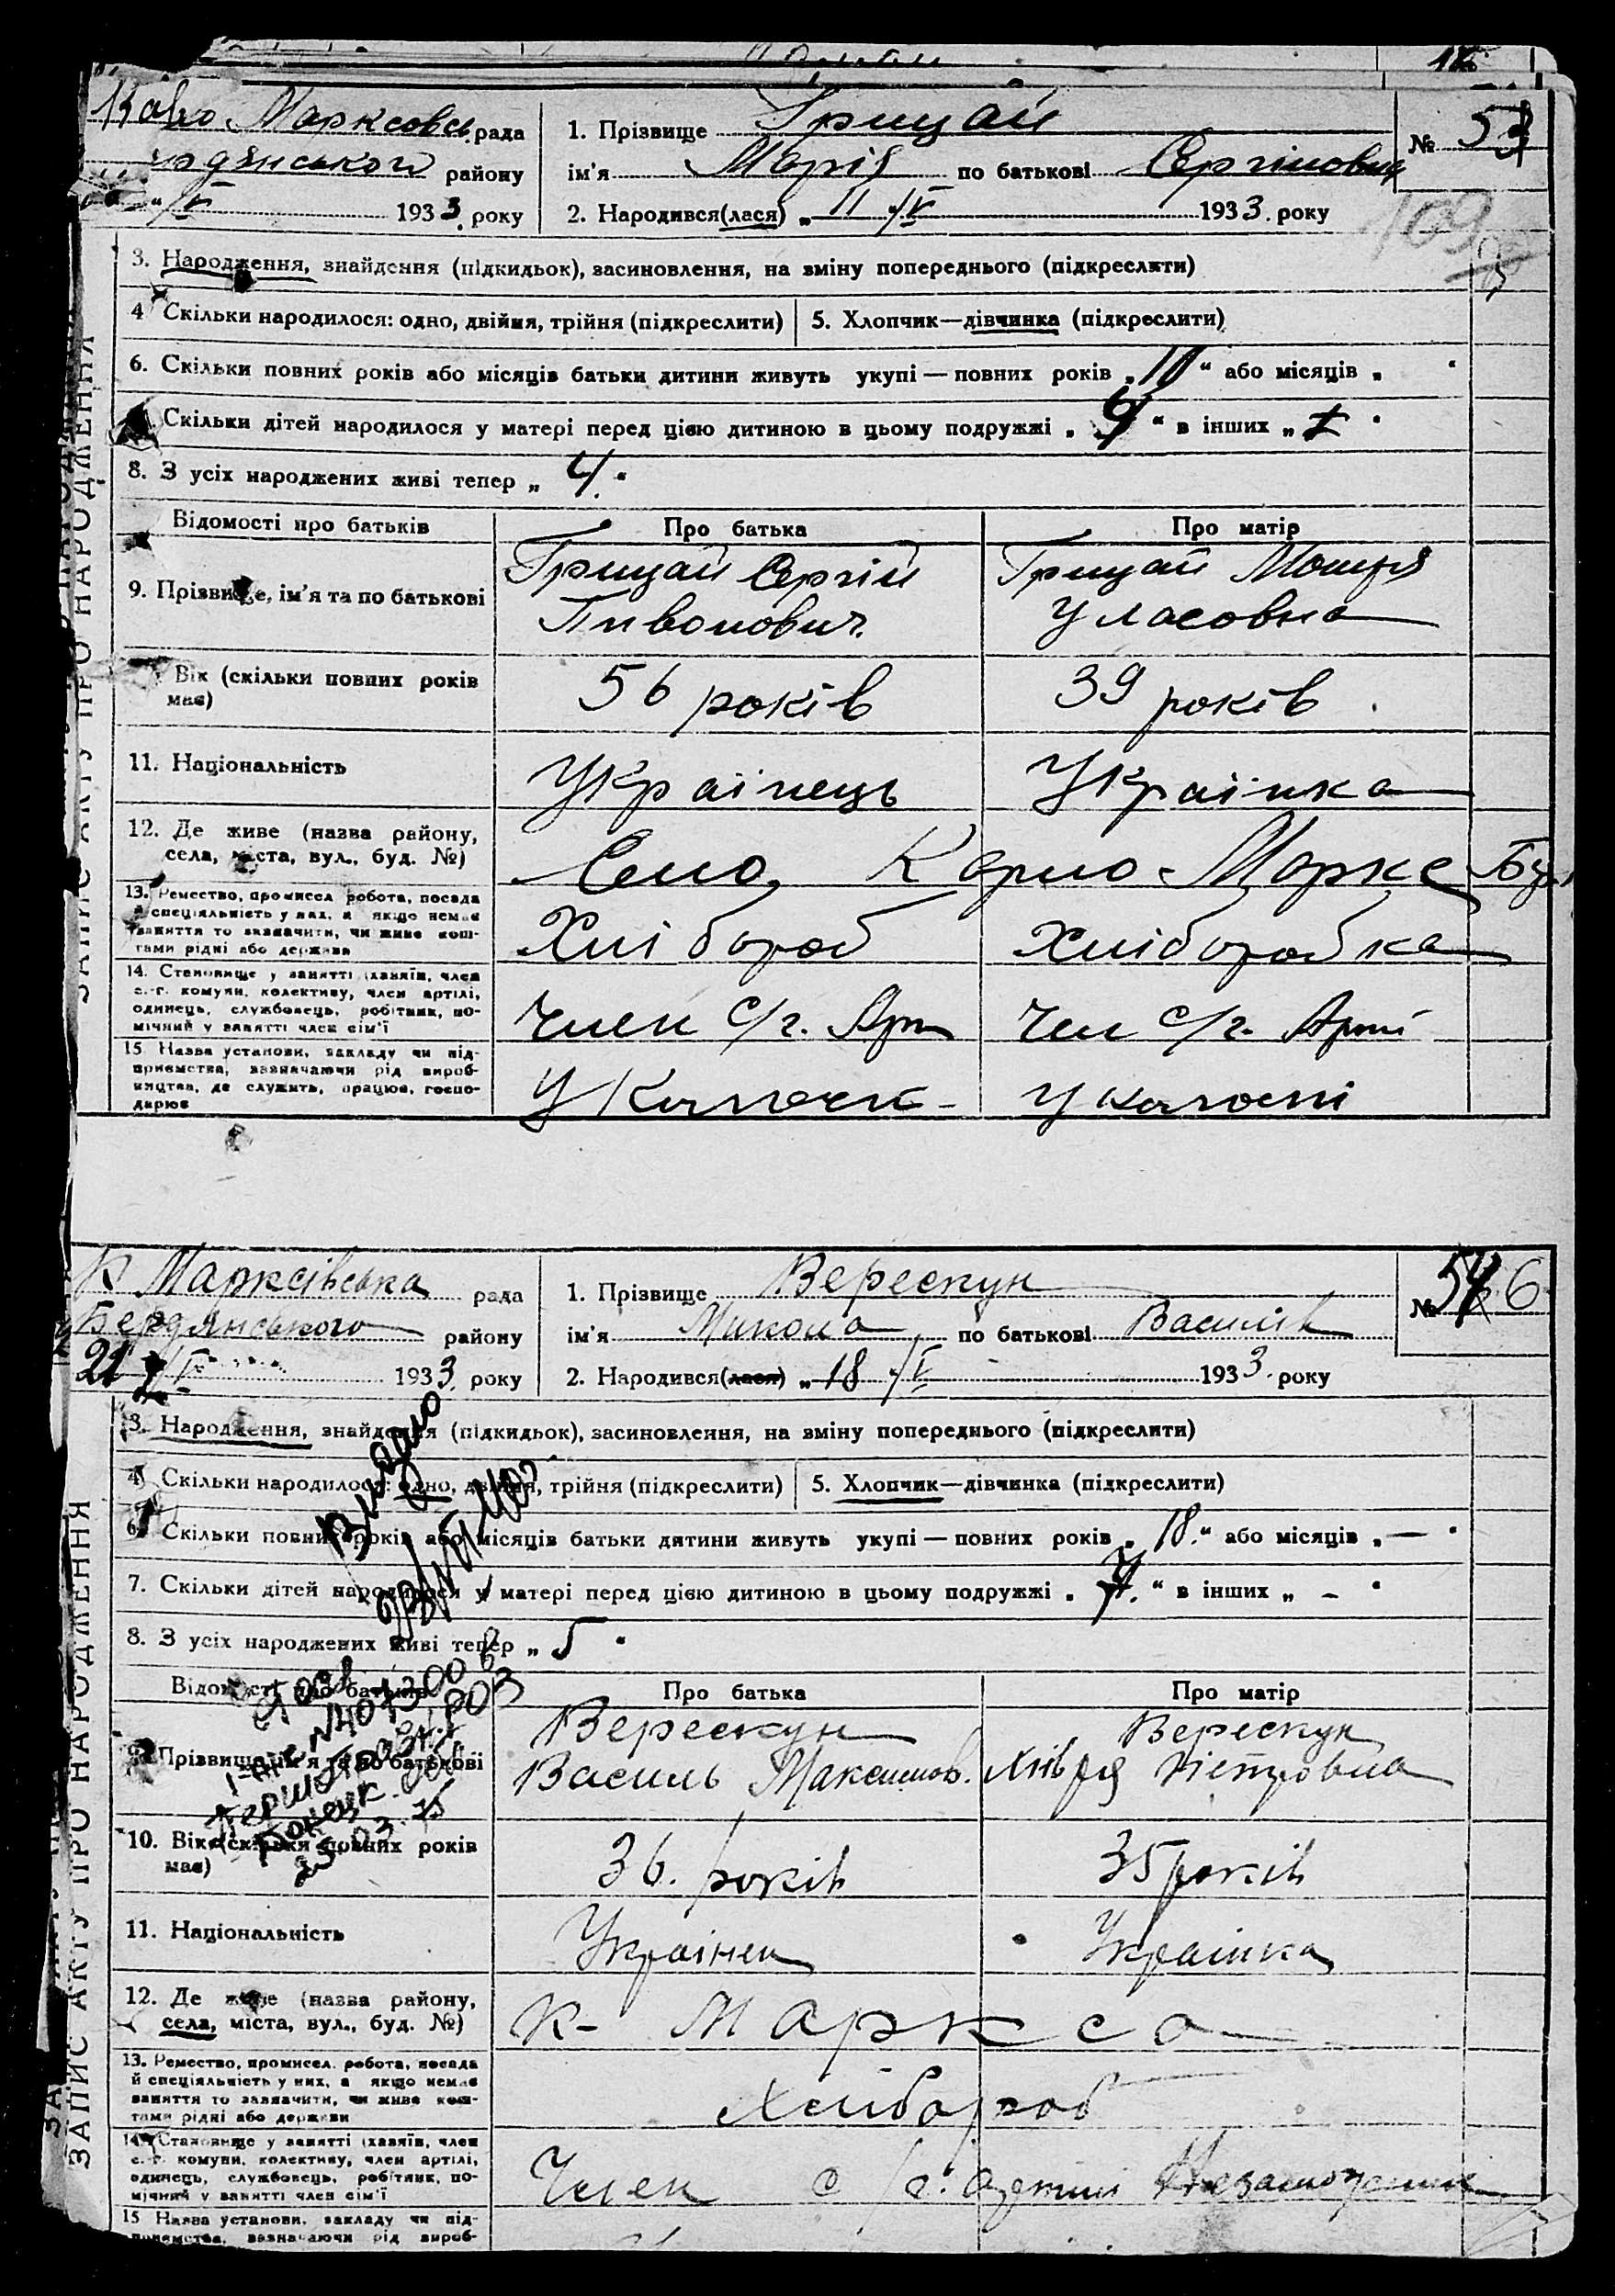 Марксовсь рада
1. Прізвище Грицай
№ 53
дянського району
ім'я Марія по батькові Сергіїовна
/V 1933. року
2. Народився(лася) „ 11 /V 1933. року
109
3. Народження, знайдення (підкидьок), засиновлення, на зміну попереднього (підкреслити)
4 Скільки народилося: одно, двійня, трійня (підкреслити) 5. Хлопчик—дівчинка (підкреслити)
6. Скільки повних років або місяців батьки дитини живуть укупі — повних років „ 10 “ або місяців „ “
Скільки дітей народилося у матері перед цією дитиною в цьому подружжі „ “ в інших „ “
8. З усіх народжених живі тепер „ 4. “
Відомості про батьків Про батька Про матір
9. Прізвище, ім'я та по батькові
Грицай Сергій Грицай Мотря
Пивонович. Уласовна
Вік (скільки повних років має)
56 років 39 років
11. Національність
Українець Українка
12. Де живе (назва району,
села, міста, вул., буд. №)
Село, Карло-Маркс
13. Ремество, промисел робота, посада
й спеціяльність у них, а якщо немає
заняття то зазначити, чи живе кош-
тами рідні або держави
Хлібороб Хліборобка
14. Становище у занятті (хазяїн, член
с.-г. комуни, колективу, член артілі,
одинець, службовець, робітник, по-
мічний у занятті член сім'ї
Член с/г. Арт Член с/г. Арті
15 Назва установи, закладу чи під-
приємства, зазначаючи рід вироб-
ництва, де служить, працює, госпо-
дарює
У Колгосп у колгоспі
К Марксівська рада
1. Прізвище Верескун
№ 54 6
Бердянського району
ім'я Микола по батькові Василів
21 /V 1933. року
2. Народився(лася) „ 18 /V 1933. року
3. Народження, знайдення (підкидьок), засиновлення, на зміну попереднього (підкреслити)
4 Скільки народилося: одно, двійня, трійня (підкреслити) 5. Хлопчик—дівчинка (підкреслити)
6. Скільки повних років або місяців батьки дитини живуть укупі — повних років „ 18. “ або місяців „ — “
7. Скільки дітей народилося у матері перед цією дитиною в цьому подружжі „ 7. “ в інших „ – “
8. З усіх народжених живі тепер „ 5 “
Видано
Відомості про батьків Про батька Про матір
9. Прізвище, ім'я та по батькові
Верескун Верескун
Василь Максимов. Хівря Пётровна
10. Вік (скільки повних років має)
36. років 35 років
11. Національність
Українец Українка
12. Де живе (назва району,
села, міста, вул., буд. №)
К- Маркса
13. Ремество, промисел. робота, посада
й спеціяльність у них, а якщо немає
заняття то зазначити, чи живе кош-
тами рідні або держави
Хлібороб
14. Становище у занятті (хазяїн, член
с.-г. комуни, колективу, член артілі,
одинець, службовець, робітник, по-
мічний у занятті член сім'ї
Член с/г. артілі Незаможник
15 Назва установи, закладу чи під-
приємства, зазначаючи рід вироб-
ЗАПИС АКТУ ПРО НАРОДЖЕННЯ
ЗАПИС АКТУ ПРО НАРОДЖЕННЯ